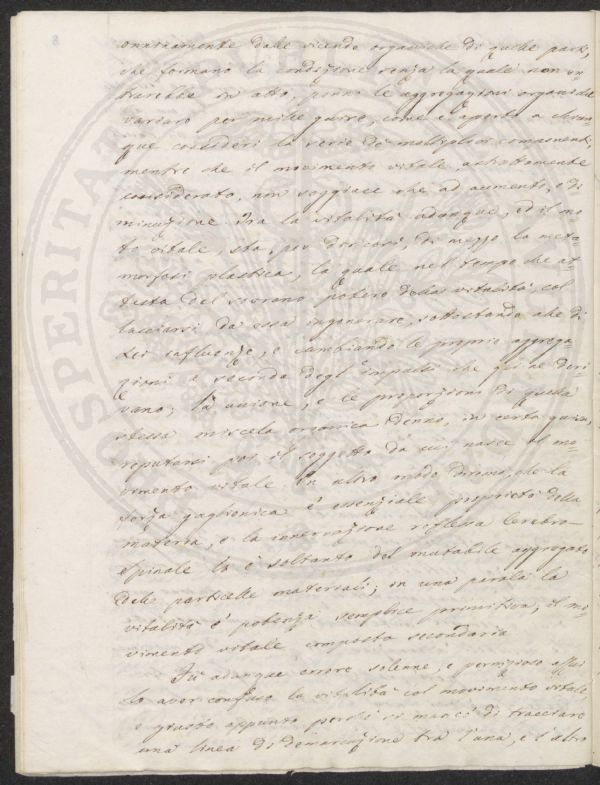 8
onninamente dalle vicende organiche di quelle parti,
che formano la condizione senza la quale non en
trarebbe in atto, ponno le aggregazioni organiche
variare per mille guise, come è aperto a chiun
que consideri la serie de' molteplici componenti,
mentre che il movimento vitale, astrattamente
considerato, non soggiace che ad aumento, e di
minuzione. Tra la vitalità adunque, ed il mo
to vitale, sta, per dir così, di mezzo la meta
morfosi plastica, la quale nel tempo che at
testa del sovrano potere della vitalità, col
lasciarsi da essa ingenerare, sottostando alle di
lei influenze, e cambiando le proprie aggrega
zioni a seconda degl'impulsi che qui ne deri
vano, la unione, e le proporzioni di quella
stessa miscela organica denno, in certa guisa,
reputarsi poi il soggetto da cui nasce il mo-
vimento vitale. In altro modo diremo, che la
forza ganglionica è essenziale proprietà della
materia, e la innervazione riflessa Cerebro-
spinale lo è soltanto del mutabile aggregato
delle particelle materiali; in una parola la
vitalità è potenza semplice primitiva, il mo-
vimento vitale composta secondaria
Fu adunque errore solenne, e pernizioso assai
lo aver confuso la vitalità col movimento vitale
e giusto appunto perchè si mancò di tracciare
una linea di demarcazione tra l'una, e l'altro
PROSPERITATI PUBLICAE